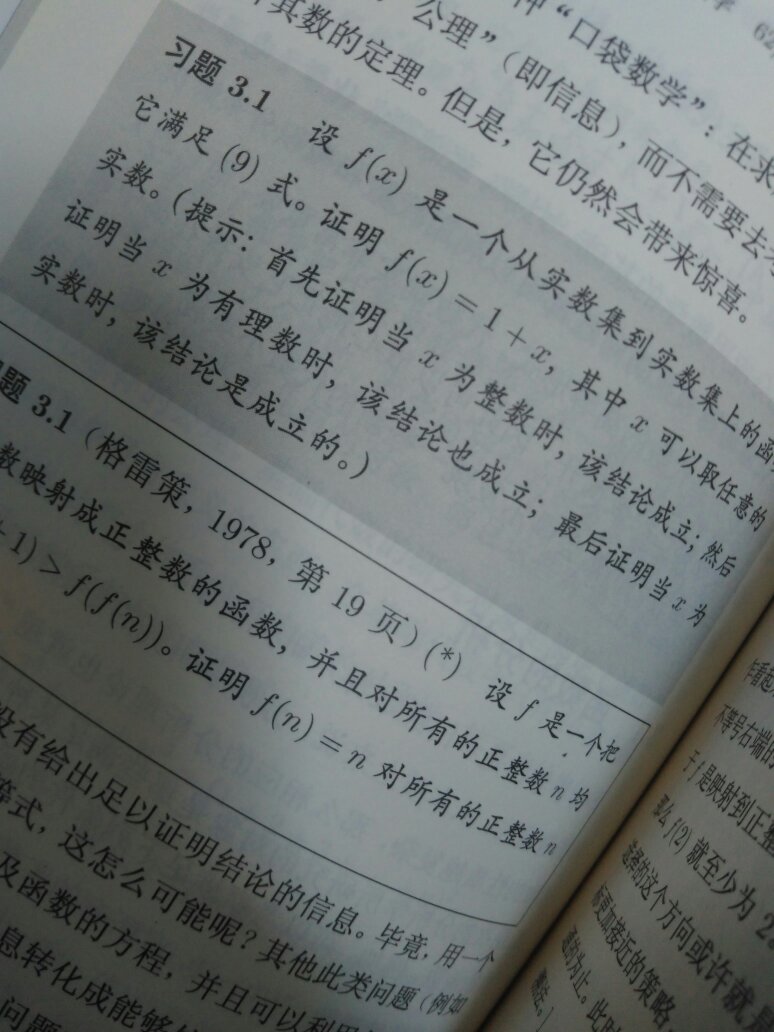 “口袋数学”：在求
公理”（即信息），而不需要去
其数的定理。但是，它仍然会带来惊喜。
习题 3.1 设 f(x) 是一个从实数集到实数集上的函
它满足 (9) 式。证明 f(x) = 1 + x，其中 x 可以取任意的
实数。（提示：首先证明当 x 为整数时，该结论成立；然后
证明当 x 为有理数时，该结论也成立；最后证明当 x 为
实数时，该结论是成立的。）
题 3.1（格雷策，1978，第 19 页）(*) 设 f 是一个把
数映射成正整数的函数，并且对所有的正整数 n 均
+ 1) > f(f(n))。证明 f(n) = n 对所有的正整数 n
没有给出足以证明结论的信息。毕竟，用一个
等式，这怎么可能呢？其他此类问题（例如
及函数的方程，并且可以利用
息转化成能够
问题
不等号右端的
于 f 是映射到正整
那么 f(2) 就至少为 2
选择的这个方向或许就是
更加接近的策略
为止。此时